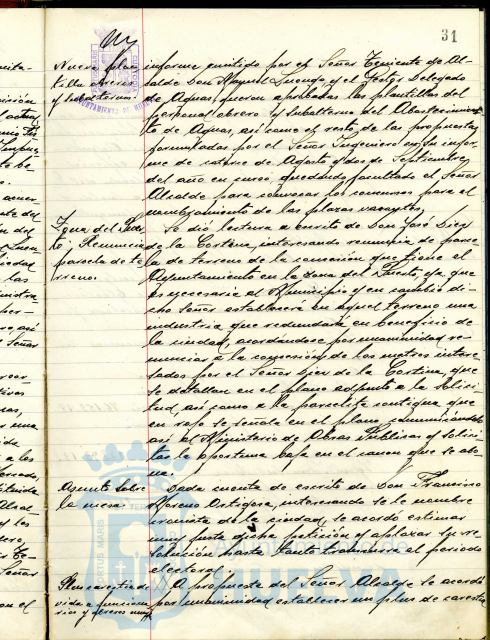 31
Nueva plan
tilla obreros
y subalternos.
informe emitido por el Señor Teniente de Al-
calde Don Manuel y el Señor Delegado
de Aguas, fueron aprobadas las plantillas del
personal obrero y subalterno del Abastecimien-
to de Aguas, así como el resto de las propuestas
formuladas por el Señor Ingeniero en su infor-
me de catorce de Agosto y dos de Septiembre
del año en curso quedando facultado el Señor
Alcalde para convocar los concursos para el
nombramiento de las plazas vacantes.
Zona del Puer-
to; Renuncia
parcela de te-
rreno.
Se dió lectura a escrito de Don José Díez
de la Cortina, interesando renuncia de parce-
la de terreno de la concesión que tiene el
Ayuntamiento en la Zona del Puerto, ya que
es necesaria al Municipio y en cambio di-
cho Señor establecerá en aquel terreno una
industria que redundará en beneficio de
la ciudad, acordándose por unanimidad re-
nunciar a la concesión de los metros intere-
sados por el Señor Díez de la Cortina, que
se detallan en el plano adjunto a la solici-
tud, así como a la parcelita contigua que
en rojo se señala en el plano, comunicándolo
así al Ministerio de Obras Públicas y solici-
tar la oportuna baja en el canon que se abo-
na.
Asunto sobre
la mesa.
Dada cuenta de escrito de Don Francisco
Moreno Ortigosa, interesando se le nombre
cronista de la ciudad, se acordó estimar
muy justa dicha petición y aplazar su re-
solución hasta tanto transcurra el período
electoral.
Plus carestía de
vida a funciona
rios y obreros
A propuesta del Señor Alcalde se acordó
por unanimidad establecer un plus de carestía
Ayuntamiento de
HUELVA
PORTUS MARIS